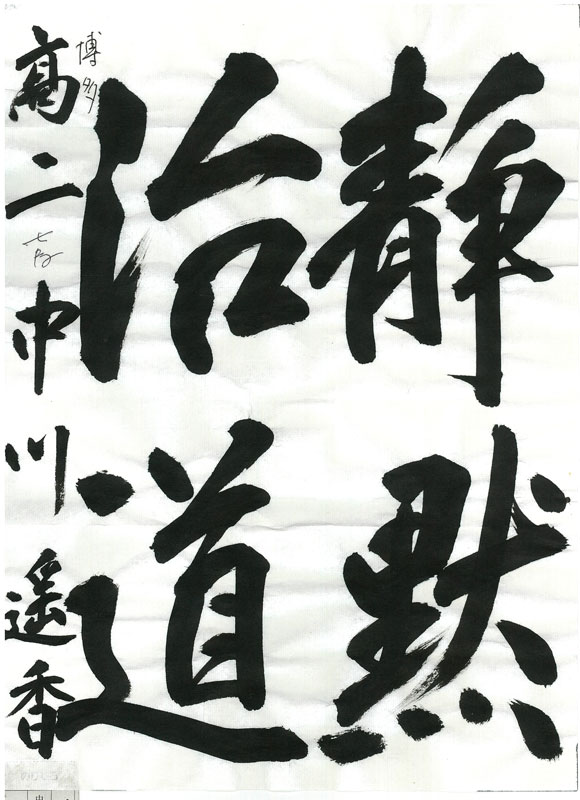 静黙
治道
博多
高二 中川遥香